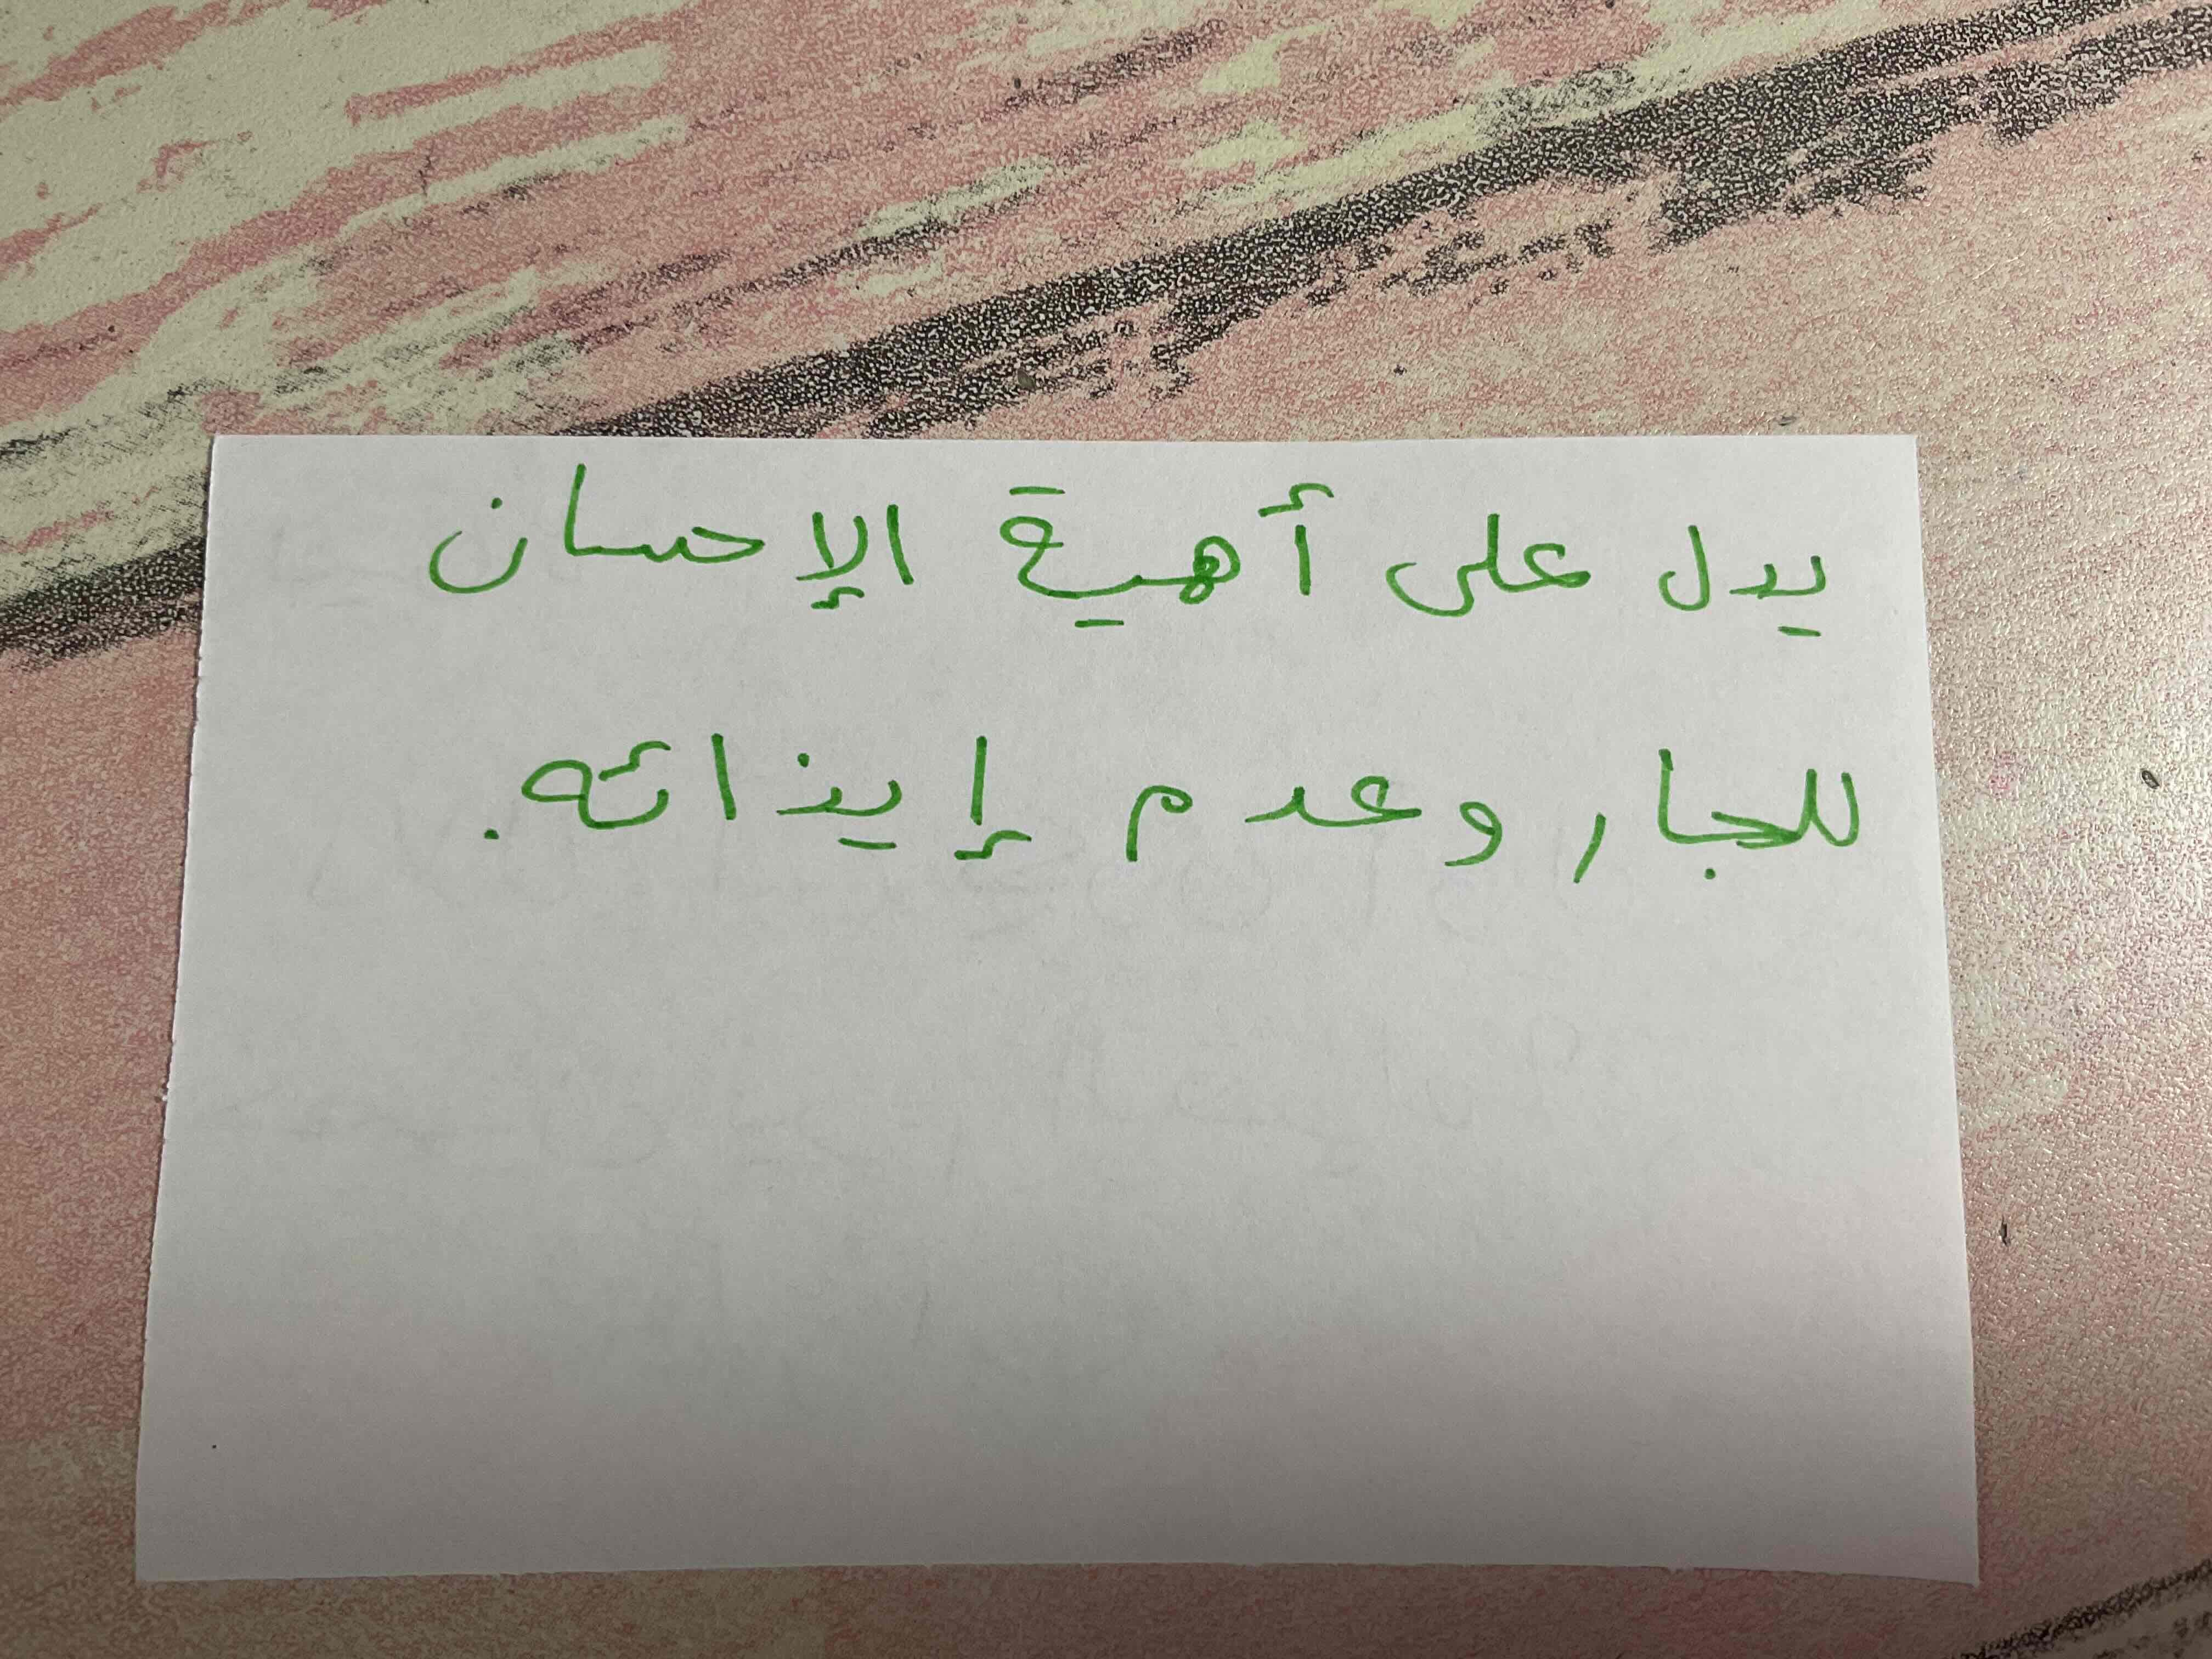 يدل على أهمية الإحسان
للجار وعدم إيذائه.